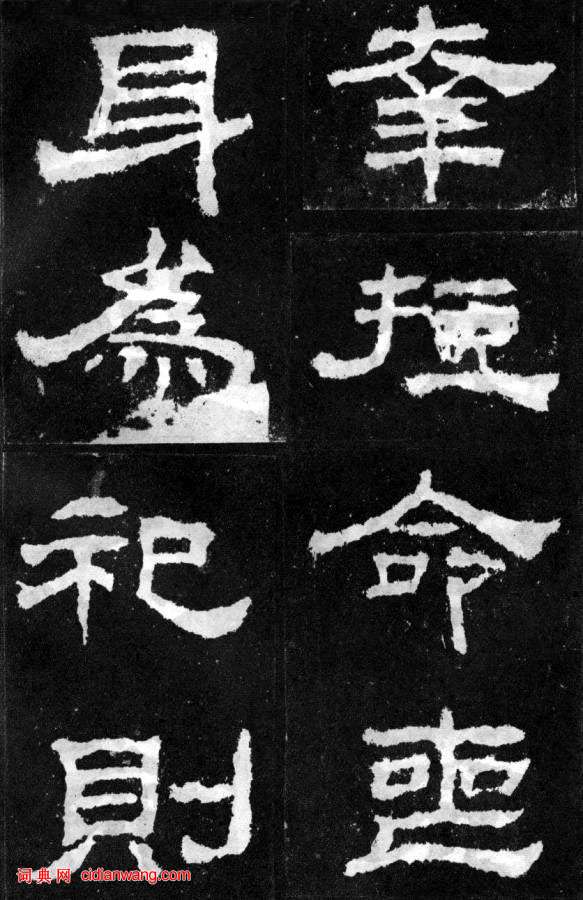 幸短命喪
身為祀則
词典网 cidianwang.com